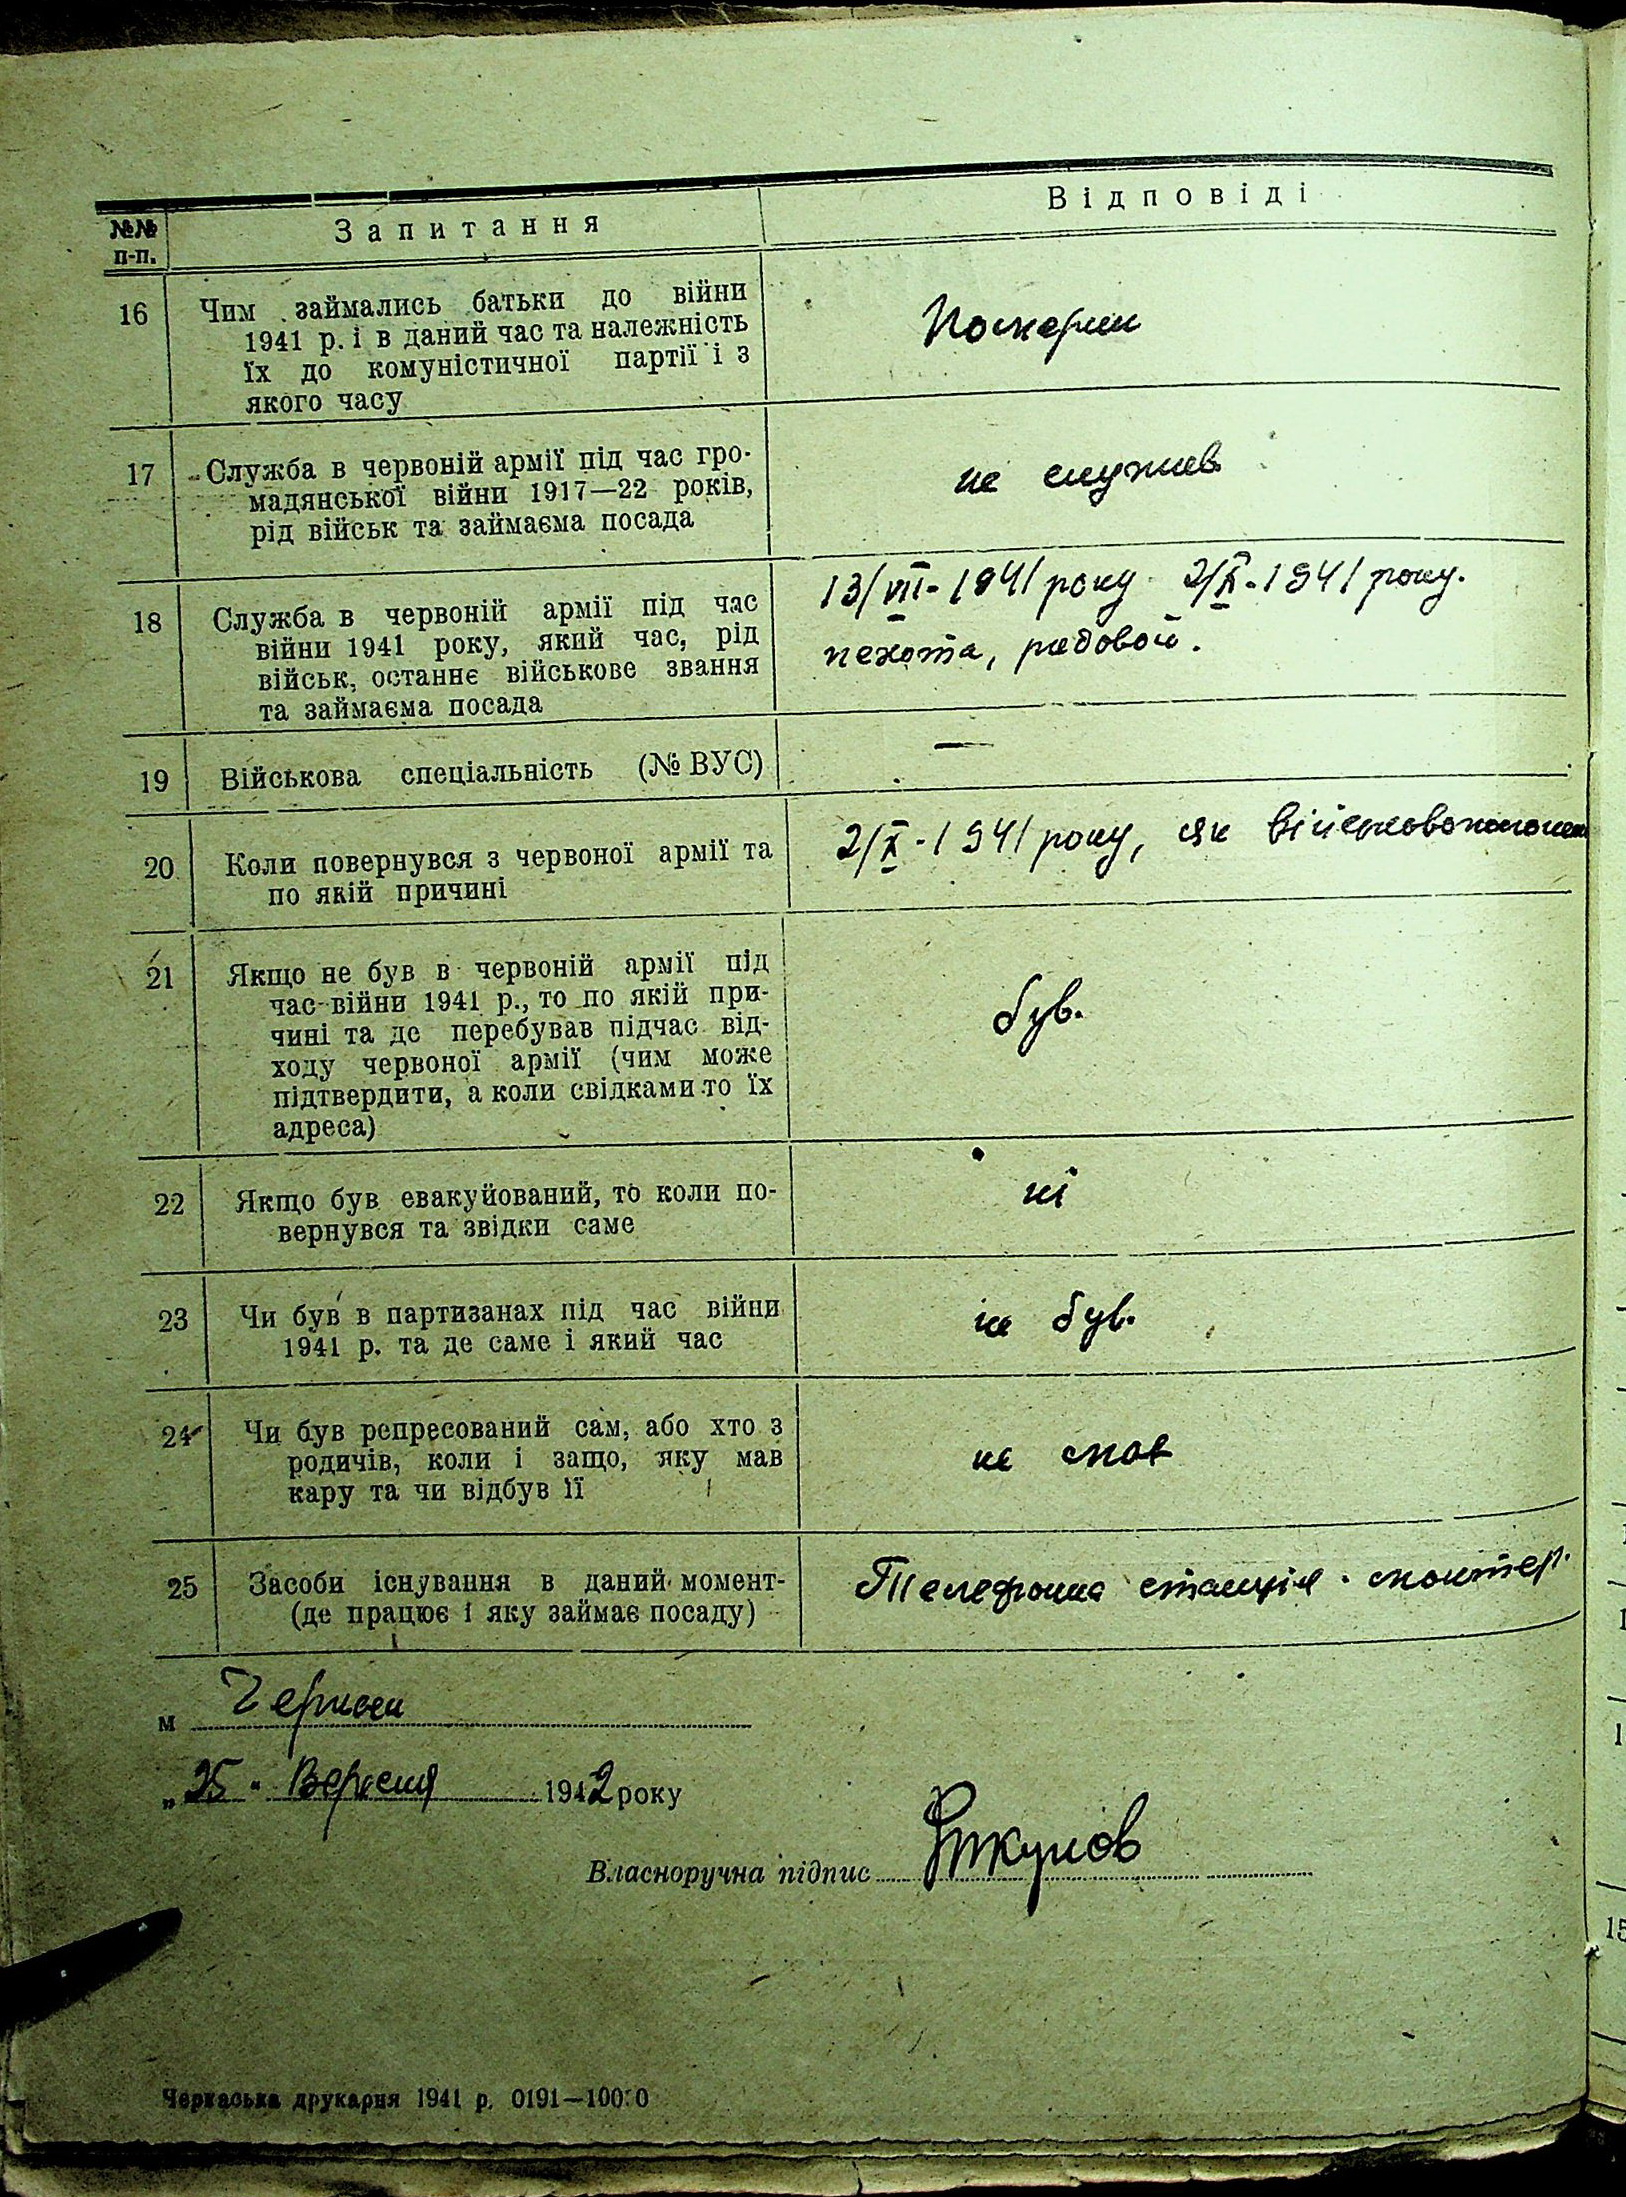 №№ п-п.
Запитання
Відповіді
16
Чим займались батьки до війни
1941 р. і в даний час та належність
їх до комуністичної партії і з
якого часу
Померли
17
Служба в червоній армії під час гро-
мадянської війни 1917—22 років,
рід військ та займаєма посада
не служив
18
Служба в червоній армії під час
війни 1941 року, який час, рід
військ, останнє військове звання
та займаєма посада
13/VII-1941 року 2/X-1941 року.
пехота, радовой.
19
Військова спеціальність (№ ВУС)
—
20
Коли повернувся з червоної армії та
по якій причині
2/X-1941 року, як військовополонен
21
Якщо не був в червоній армії під
час війни 1941 р., то по якій при-
чині та де перебував підчас від-
ходу червоної армії (чим може
підтвердити, а коли свідками то їх
адреса)
був.
22
Якщо був евакуйований, то коли по-
вернувся та звідки саме
ні
23
Чи був в партизанах під час війни
1941 р. та де саме і який час
не був.
24
Чи був репресований сам, або хто з
родичів, коли і защо, яку мав
кару та чи відбув її
не мав
25
Засоби існування в даний момент-
(де працює і яку займає посаду)
Телефонна станція. монтер.
м Черкаси
„25" Вересня 1942 року
Власноручна підпис
Черкаська друкарня 1941 р. 0191—10000